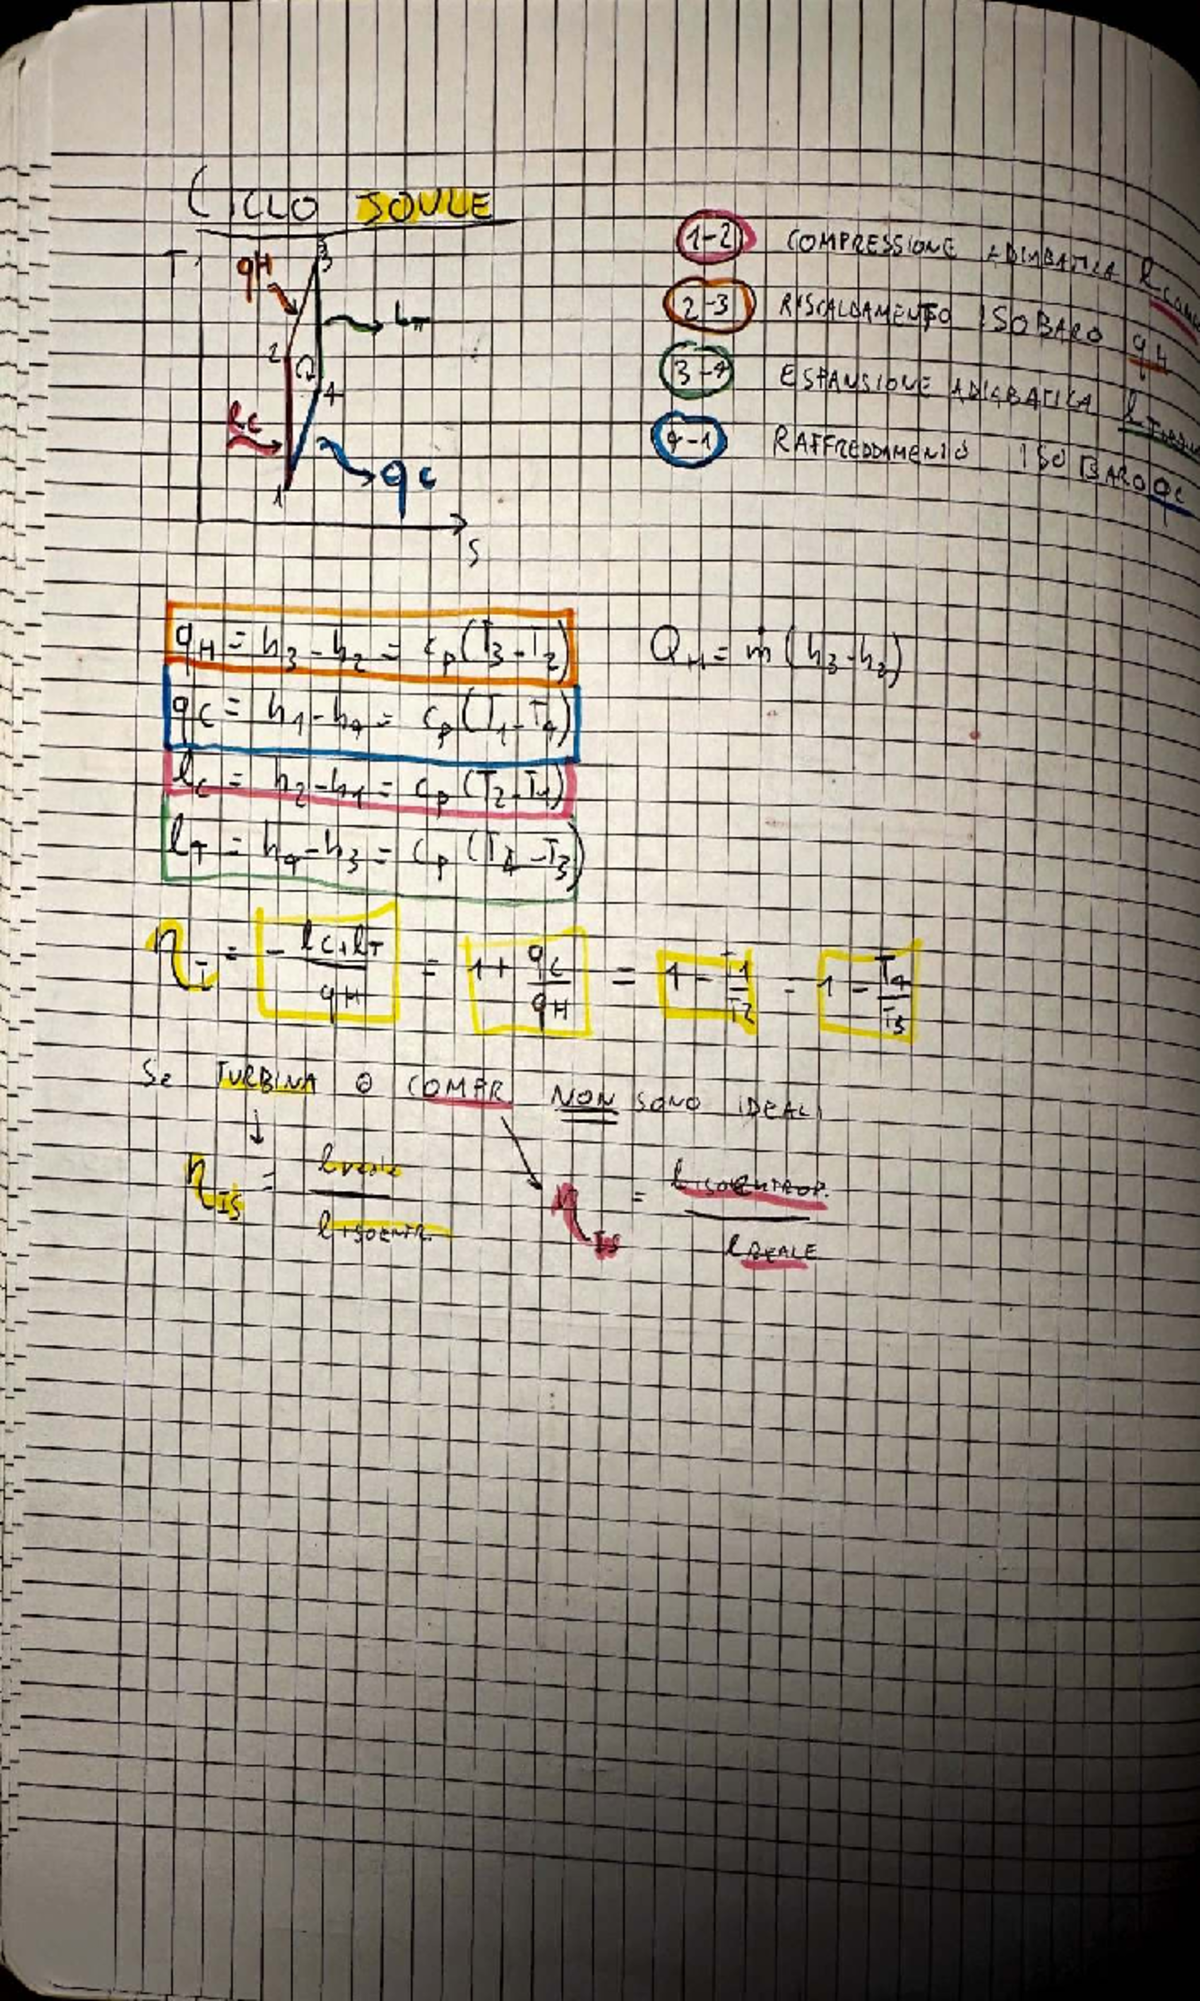 CICLO JOULE
T
3
qH
LT
2
4
lC
qC
1
S
1-2 COMPRESSIONE ADIABATICA
2-3 RISCALDAMENTO ISOBARO qH
3-4 ESPANSIONE ADIABATICA
4-1 RAFFREDDAMENTO ISOBARO qC
qH = h3 - h2 = cp (T3 - T2)
QH = ṁ (h3 - h2)
qC = h1 - h4 = cp (T1 - T4)
lC = h2 - h1 = cp (T2 - T1)
lT = h4 - h3 = cp (T4 - T3)
ηT = - lC + lT / qH = 1 + qC / qH = 1 - T1 / T2 = 1 - T4 / T3
Se TURBINA o COMPR. NON SONO IDEALI
ηIS = lreale / lISOENTR.
ηIS = lISOENTROP. / lREALE